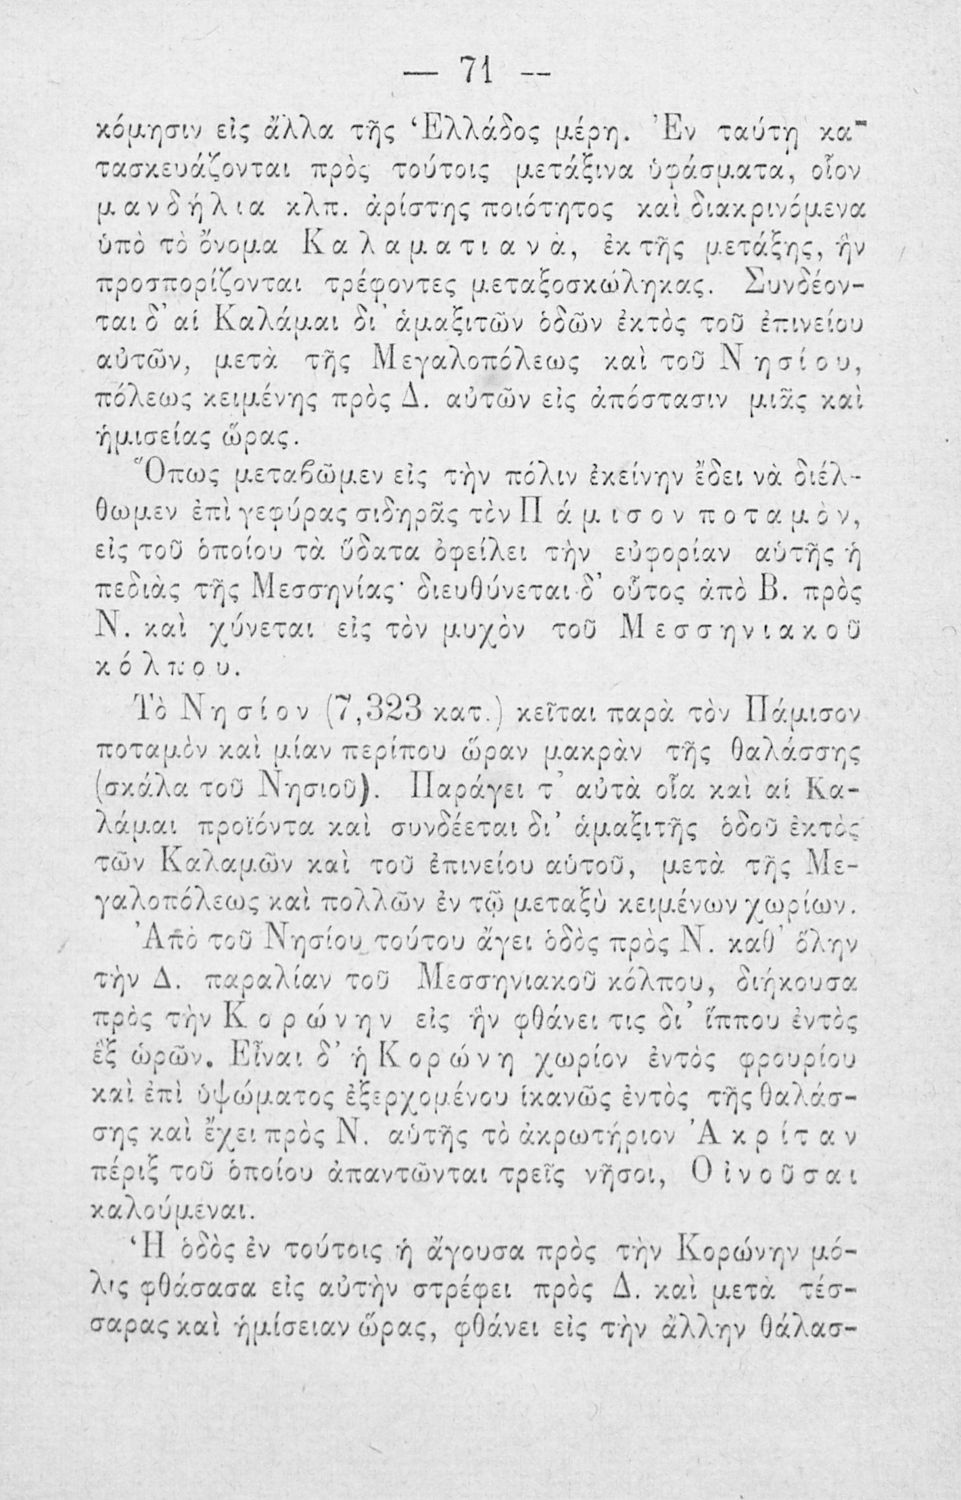 — 71 —
κόμησιν εἰς ἄλλα τῆς Ἑλλάδος μέρη. Ἐν ταύτῃ κα-
τασκευάζονται πρὸς τούτοις μετάξινα ὑφάσματα, οἷον
μανδήλια κλπ. ἀρίστης ποιότητος καὶ διακρινόμενα
ὑπὸ τὸ ὄνομα Καλαματιανὰ, ἐκ τῆς μετάξης, ἣν
προσπορίζονται τρέφοντες μεταξοσκώληκας. Συνδέον-
ται δ᾽ αἱ Καλάμαι δι᾽ ἁμαξιτῶν ὁδῶν ἐκτὸς τοῦ ἐπινείου
αὐτῶν, μετὰ τῆς Μεγαλοπόλεως καὶ τοῦ Νησίου,
πόλεως κειμένης πρὸς Δ. αὐτῶν εἰς ἀπόστασιν μιᾶς καὶ
ἡμισείας ὥρας.
Ὅπως μεταβῶμεν εἰς τὴν πόλιν ἐκείνην ἔδει νὰ διέλ-
θωμεν ἐπὶ γεφύρας σιδηρᾶς τὸν Πάμισον ποταμὸν,
εἰς τοῦ ὁποίου τὰ ὕδατα ὀφείλει τὴν εὐφορίαν αὑτῆς ἡ
πεδιὰς τῆς Μεσσηνίας· διευθύνεται δ᾽ οὗτος ἀπὸ Β. πρὸς
Ν. καὶ χύνεται εἰς τὸν μυχὸν τοῦ Μεσσηνιακοῦ
κόλπου.
Τὸ Νησίον (7,323 κατ.) κεῖται παρὰ τὸν Πάμισον
ποταμὸν καὶ μίαν περίπου ὥραν μακρὰν τῆς θαλάσσης
(σκάλα τοῦ Νησιοῦ). Παράγει τ᾽ αὐτὰ οἷα καὶ αἱ Κα-
λάμαι προϊόντα καὶ συνδέεται δι᾽ ἁμαξιτῆς ὁδοῦ ἐκτὸς
τῶν Καλαμῶν καὶ τοῦ ἐπινείου αὑτοῦ, μετὰ τῆς Με-
γαλοπόλεως καὶ πολλῶν ἐν τῷ μεταξὺ κειμένων χωρίων.
Ἀπὸ τοῦ Νησίου τούτου ἄγει ὁδὸς πρὸς Ν. καθ᾽ ὅλην
τὴν Δ. παραλίαν τοῦ Μεσσηνιακοῦ κόλπου, διήκουσα
πρὸς τὴν Κορώνην εἰς ἣν φθάνει τις δι᾽ ἵππου ἐντὸς
ἓξ ὡρῶν. Εἶναι δ᾽ ἡ Κορώνη χωρίον ἐντὸς φρουρίου
καὶ ἐπὶ ὑψώματος ἐξερχομένου ἱκανῶς ἐντὸς τῆς θαλάσ-
σης καὶ ἔχει πρὸς Ν. αὑτῆς τὸ ἀκρωτήριον Ἀκρίταν
πέριξ τοῦ ὁποίου ἀπαντῶνται τρεῖς νῆσοι, Οἰνοῦσαι
καλούμεναι.
Ἡ ὁδὸς ἐν τούτοις ἡ ἄγουσα πρὸς τὴν Κορώνην μό-
λις φθάσασα εἰς αὐτὴν στρέφει πρὸς Δ. καὶ μετὰ τέσ-
σαρας καὶ ἡμίσειαν ὥρας, φθάνει εἰς τὴν ἄλλην θάλασ-